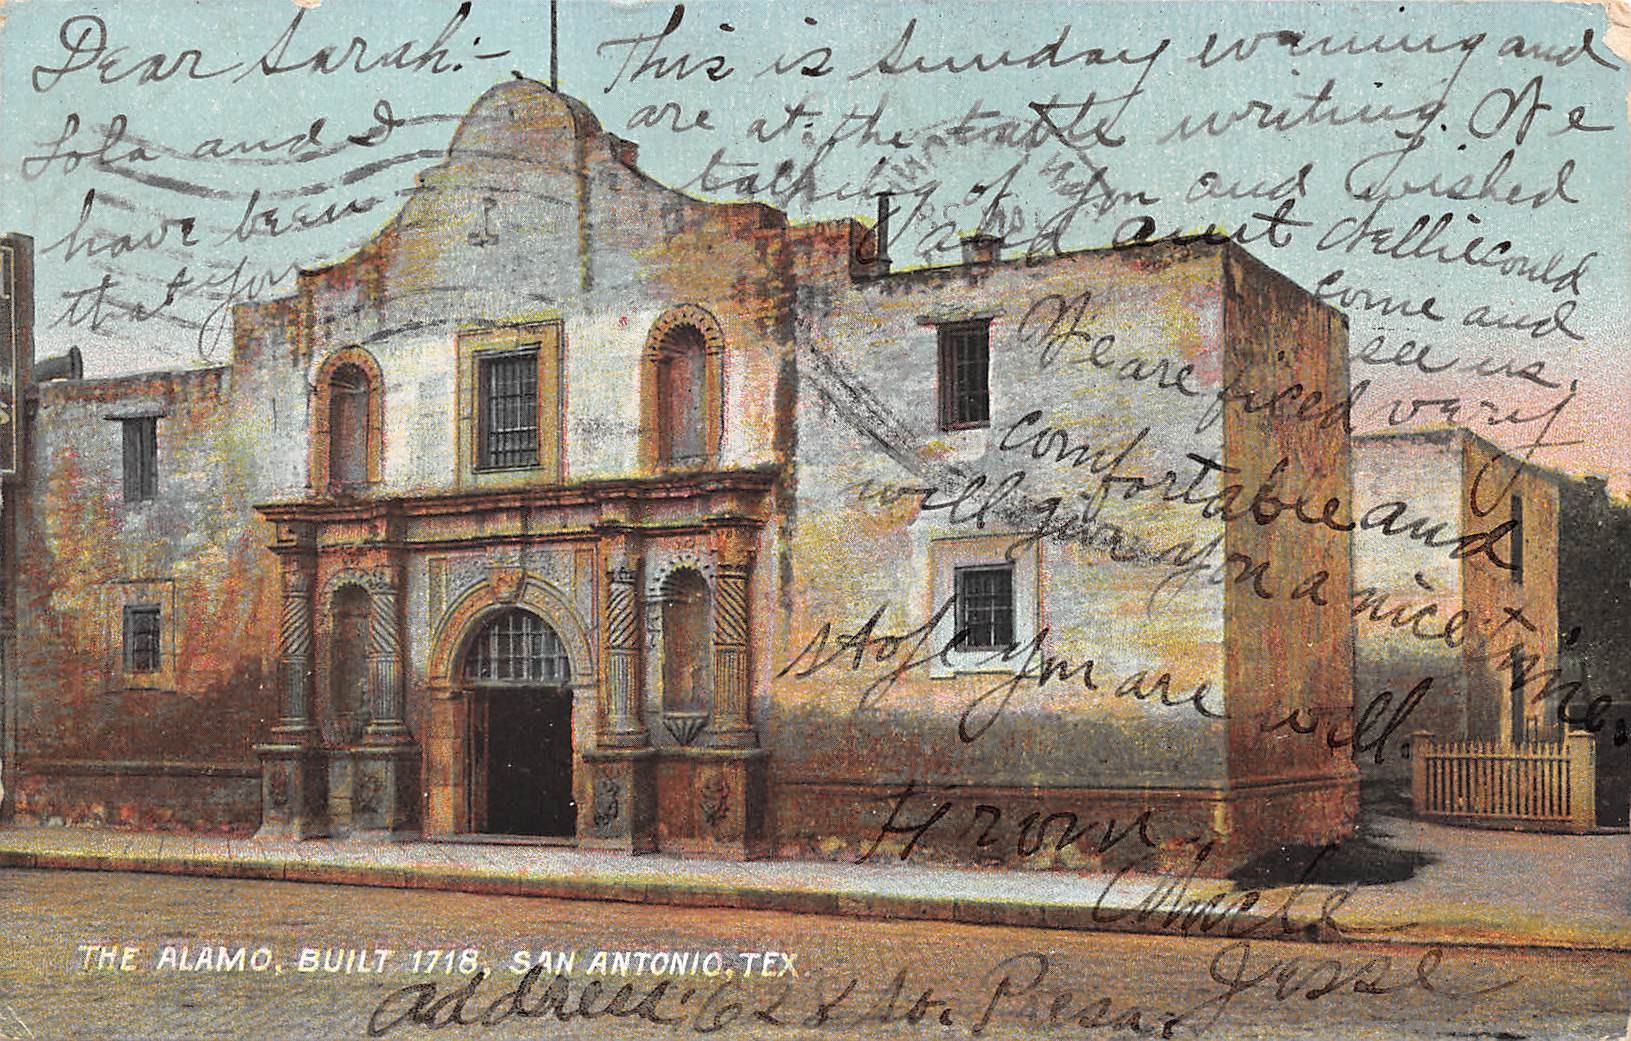 Dear Sarah:-
This is Sunday evaning and
Lola and I
are at the table writing. We
have been
talking of you and wished
that you
and aunt Nellie could
come and
see us.
We are fixed very
comfortable and
will give you a nice time.
St of you are will.
From
Uncle
Jesse
THE ALAMO, BUILT 1718, SAN ANTONIO, TEX.
address: 628 So. Presa.